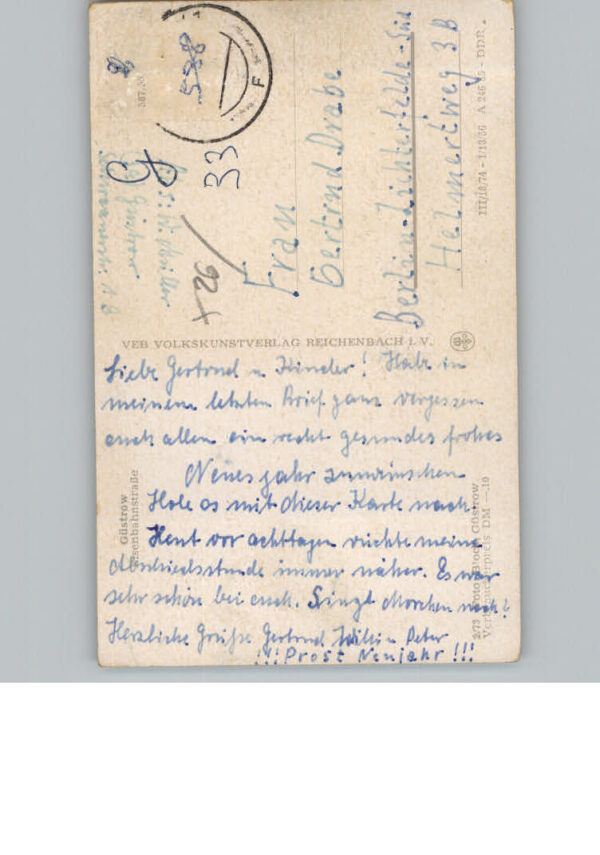 Liebe Gertrud u Kinder! Habe in
meinem letzten Brief ganz vergessen
euch allen ein recht gesundes frohes
Neues jahr zuwünschen
Hole es mit dieser Karte nach.
Heut vor achttagen rückte meine
Abschiedsstunde immer näher. Es war
sehr schön bei euch. Singt noch?
Herzliche Grüße Gertrud Willi u Peter
!!! Prost Neujahr !!!
VEB VOLKSKUNSTVERLAG REICHENBACH I. V.
Frau
Gertrud Drabe
Berlin-Lichterfelde-Süd
Helmertweg 3B
III/18/74 - I/13/56 A 246 - DDR
Müller
Güstrow
33
92
588
F
Güstrow
Eisenbahnstraße
2/73 Foto Güstrow
DM —.19